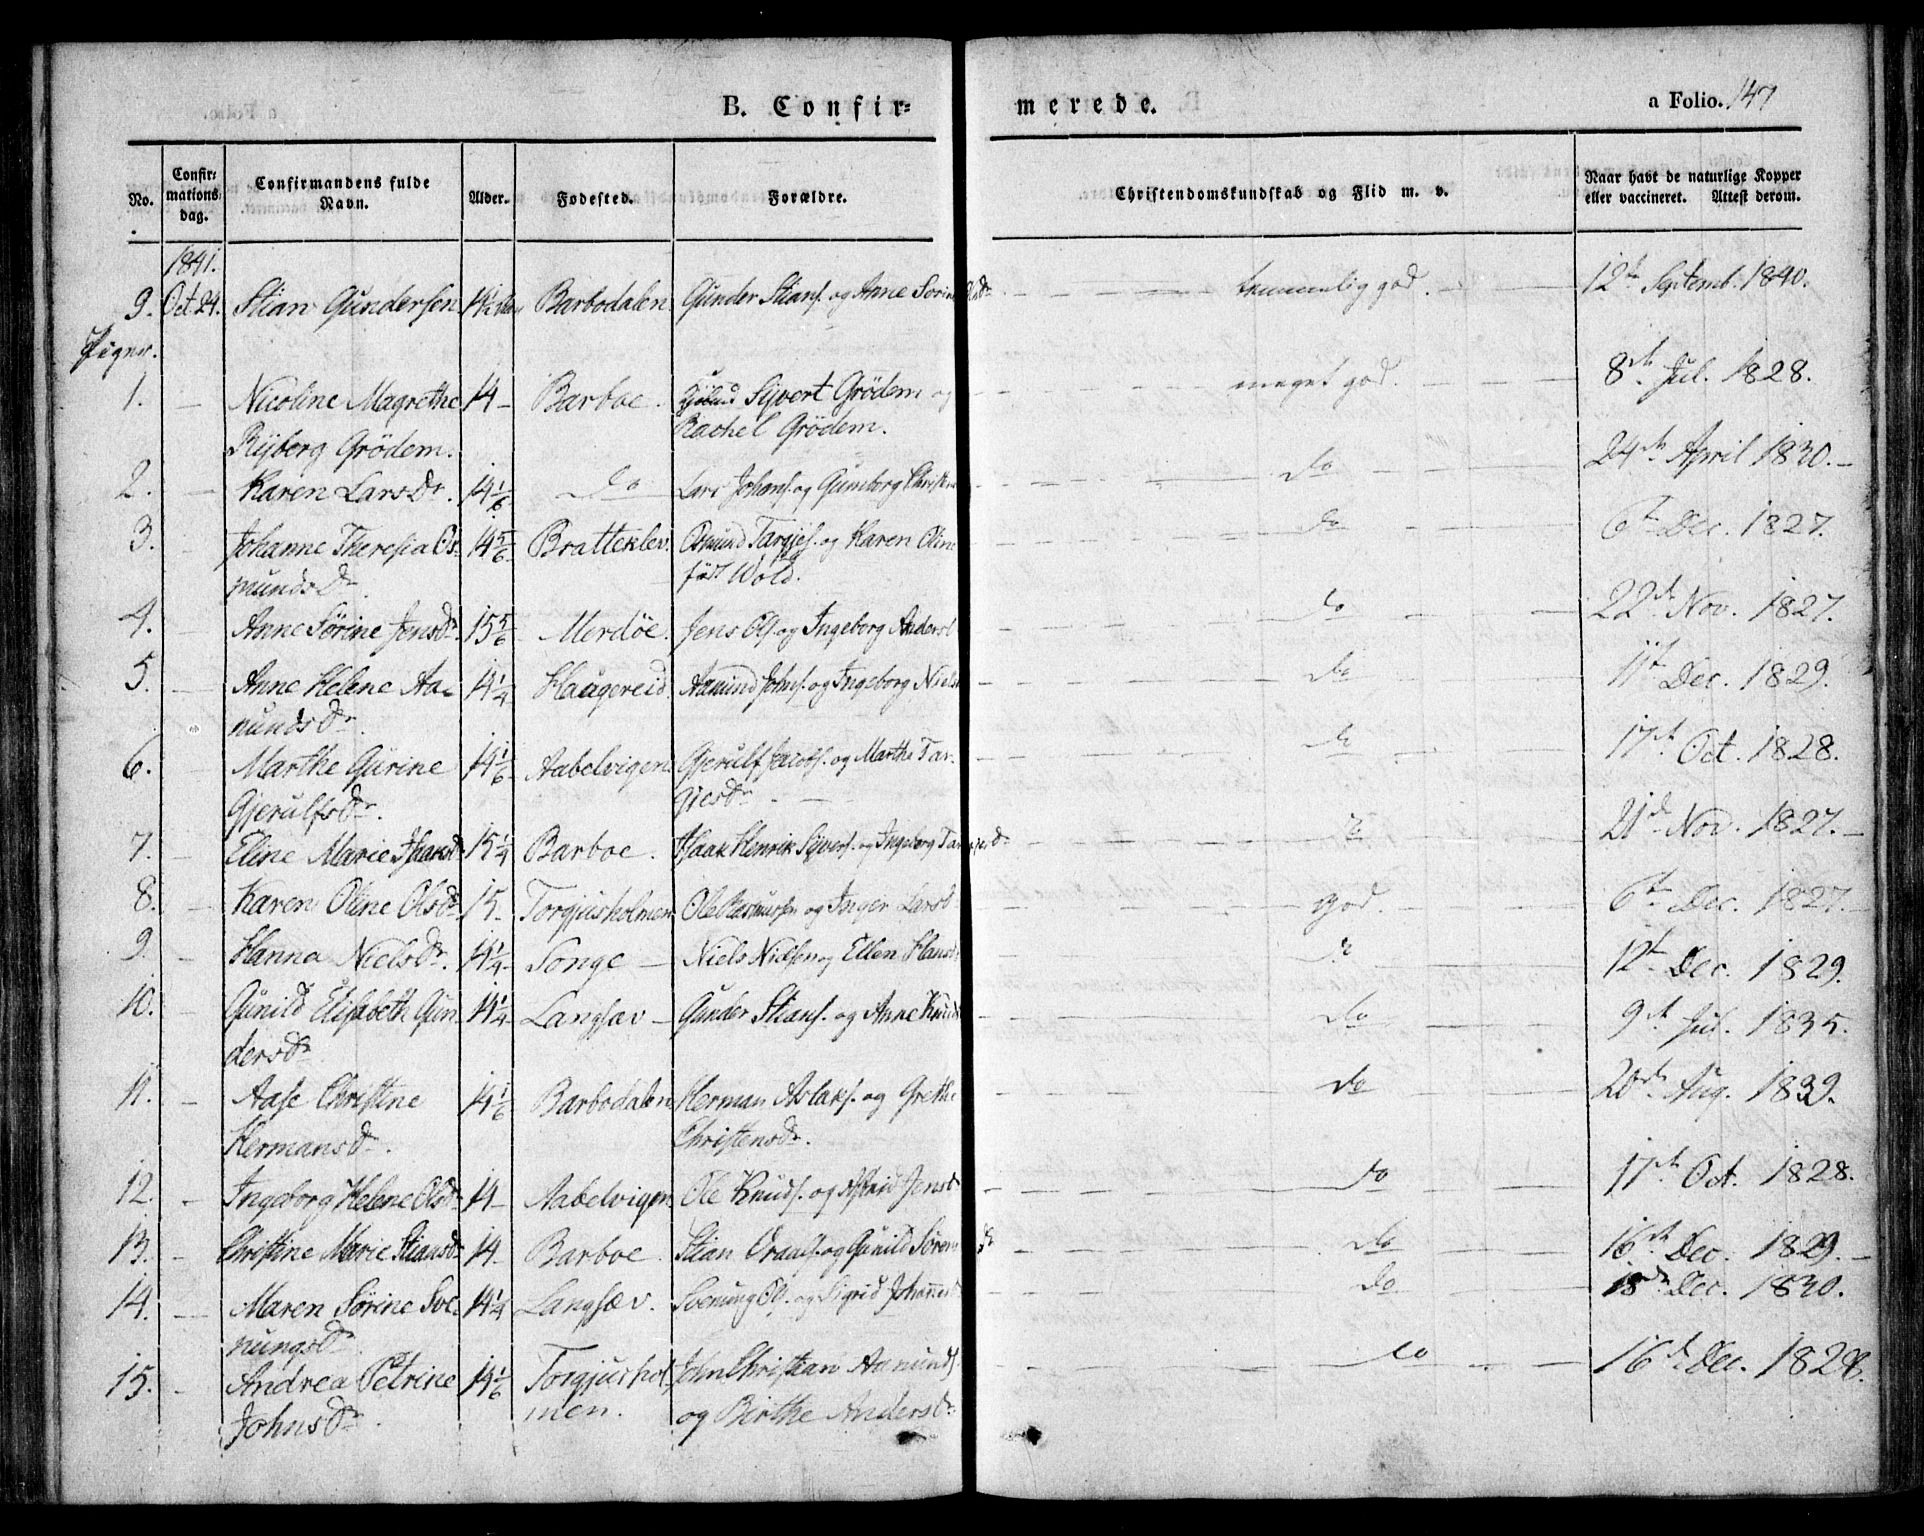 B. Confir=merede.
a Folio. 147
No. Confir=mations=dag. Confirmandens fulde Navn. Alder. Fødested. Forældre. Christendomskundskab og Flid m. v. Naar havt de naturlige Kopper eller vaccineret. Attest derom.
1841.
9. Oct. 24. Stian Gundersen 14½ Barbodalen Gunder Stians. og Anne Sørine temmelig god. 12te Septemb. 1840.
Piger.
1. — Nicoline Magrethe 14 — Barboe. Sijvert Grödem og meget god. 8de Jul. 1828.
Rijberg Grödem. Rachel Grödem.
2. — Karen Larsdr. 14 1/6 do Lars Johans. og Gunborg do 24de April 1830. —
3. Johanne Theresia Os- 14 5/6 Bratteklev. Osmund Targjes. og Karen Oline do 6te Dec. 1827.
mundsdr. født Wold.
4. Anne Sørine Jensdr. 15 5/6 Merdöe. Jens Ols. og Ingeborg Andersd do 22de Nov. 1827.
5. — Anne Helene Aa- 14 1/4 Haugereid Aanund Johns. og Ingeborg Niels do 11te Dec. 1829.
nundsdr.
6. — Marthe Gurine 14 1/6 Aabelvigen Gjerulf Jacobs. og Marthe Tar- do 17de Oct. 1828.
Gjerulfsdr. gjesdr
7. — Eline Marie Isaksd 15 1/4 Barboe. Isaak Henrik Sijvers. og Ingeborg Targjesdr do 21de Nov. 1827. —
8. — Karen Oline Olsdr 15 — Torgjusholmen Ole Rasmussen og Inger Larsd god. 6te Dec. 1827. —
9. — Hanna Nielsdr. 14 1/4 Songe — Niels Nielsen og Ellen Hansd do 12te Dec. 1829.
10. — Gunild Elisabeth Gun 14 1/4 Langsæv — Gunder Stians. og Anne Knuds do 9de Jul. 1835.
dersdr
11. — Aase Christine 14 1/6 Barbodalen Herman Aslaks. og Grethe do 20de Aug. 1839.
Hermansdr. Christensdr.
12. — Ingeborg Helene Olsdr 14 — Aabelvigen Ole Knuds. og Jensd do 17de Oct. 1828.
13. — Christine Marie Stiansd 14 — Barboe. Stian og Gunild Sørensdr do 16de Dec. 1829. —
14. — Maren Sørine Sve- 14 1/4 Langsæv. Svenung Ols. og Sigrid Johannesd do 18de Dec. 1830.
nungsdr.
15. — Andrea Petrine 14 1/6 Torgjushol- John Christian Aanunds. do 16de Dec. 1828.
Johnsdr. men. og Birthe Andersdr.